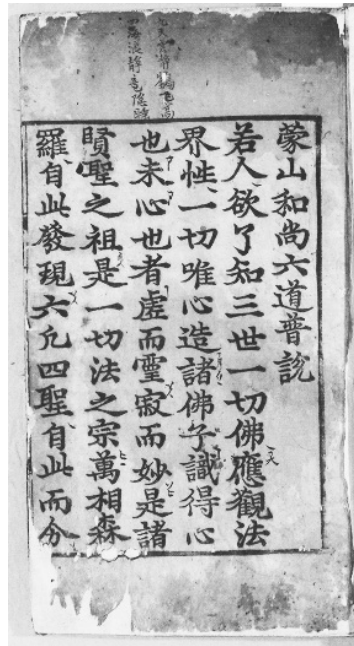 九天雲静鶴飛高
四海浪静竜隱
蒙山和尚六道普說
若人欲了知三世一切佛應觀法
界性一切唯心造諸佛子識得心
也未心也者虛而靈寂而妙是諸
賢聖之祖是一切法之宗萬相森
羅自此發現六凡四聖自此而分